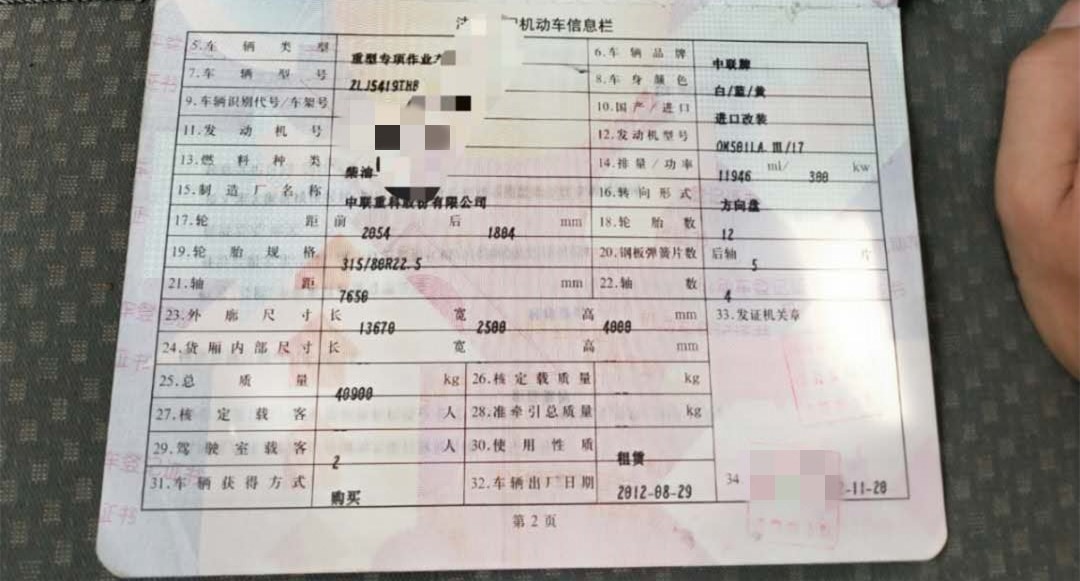 机动车信息栏
5.车辆类型 重型专项作业 6.车辆品牌 中联牌
7.车辆型号 ZLJ5419THB 8.车身颜色 白/蓝/黄
9.车辆识别代号/车架号 10.国产/进口 进口改装
11.发动机号 12.发动机型号 OM501LA.III/17
13.燃料种类 柴油 14.排量/功率 11946 ml/ 300 kw
15.制造厂名称 中联重科股份有限公司 16.转向形式 方向盘
17.轮距 前 2054 后 1804 mm 18.轮胎数 12
19.轮胎规格 315/80R22.5 20.钢板弹簧片数 后轴 5 片
21.轴距 7650 mm 22.轴数 4
23.外廓尺寸 长 13670 宽 2500 高 4000 mm 33.发证机关章
24.货厢内部尺寸 长 宽 高 mm
25.总质量 40900 kg 26.核定载质量 -- kg
27.核定载客 -- 人 28.准牵引总质量 -- kg
29.驾驶室载客 2 人 30.使用性质 租赁
31.车辆获得方式 购买 32.车辆出厂日期 2012-08-29 34 -11-20
第2页